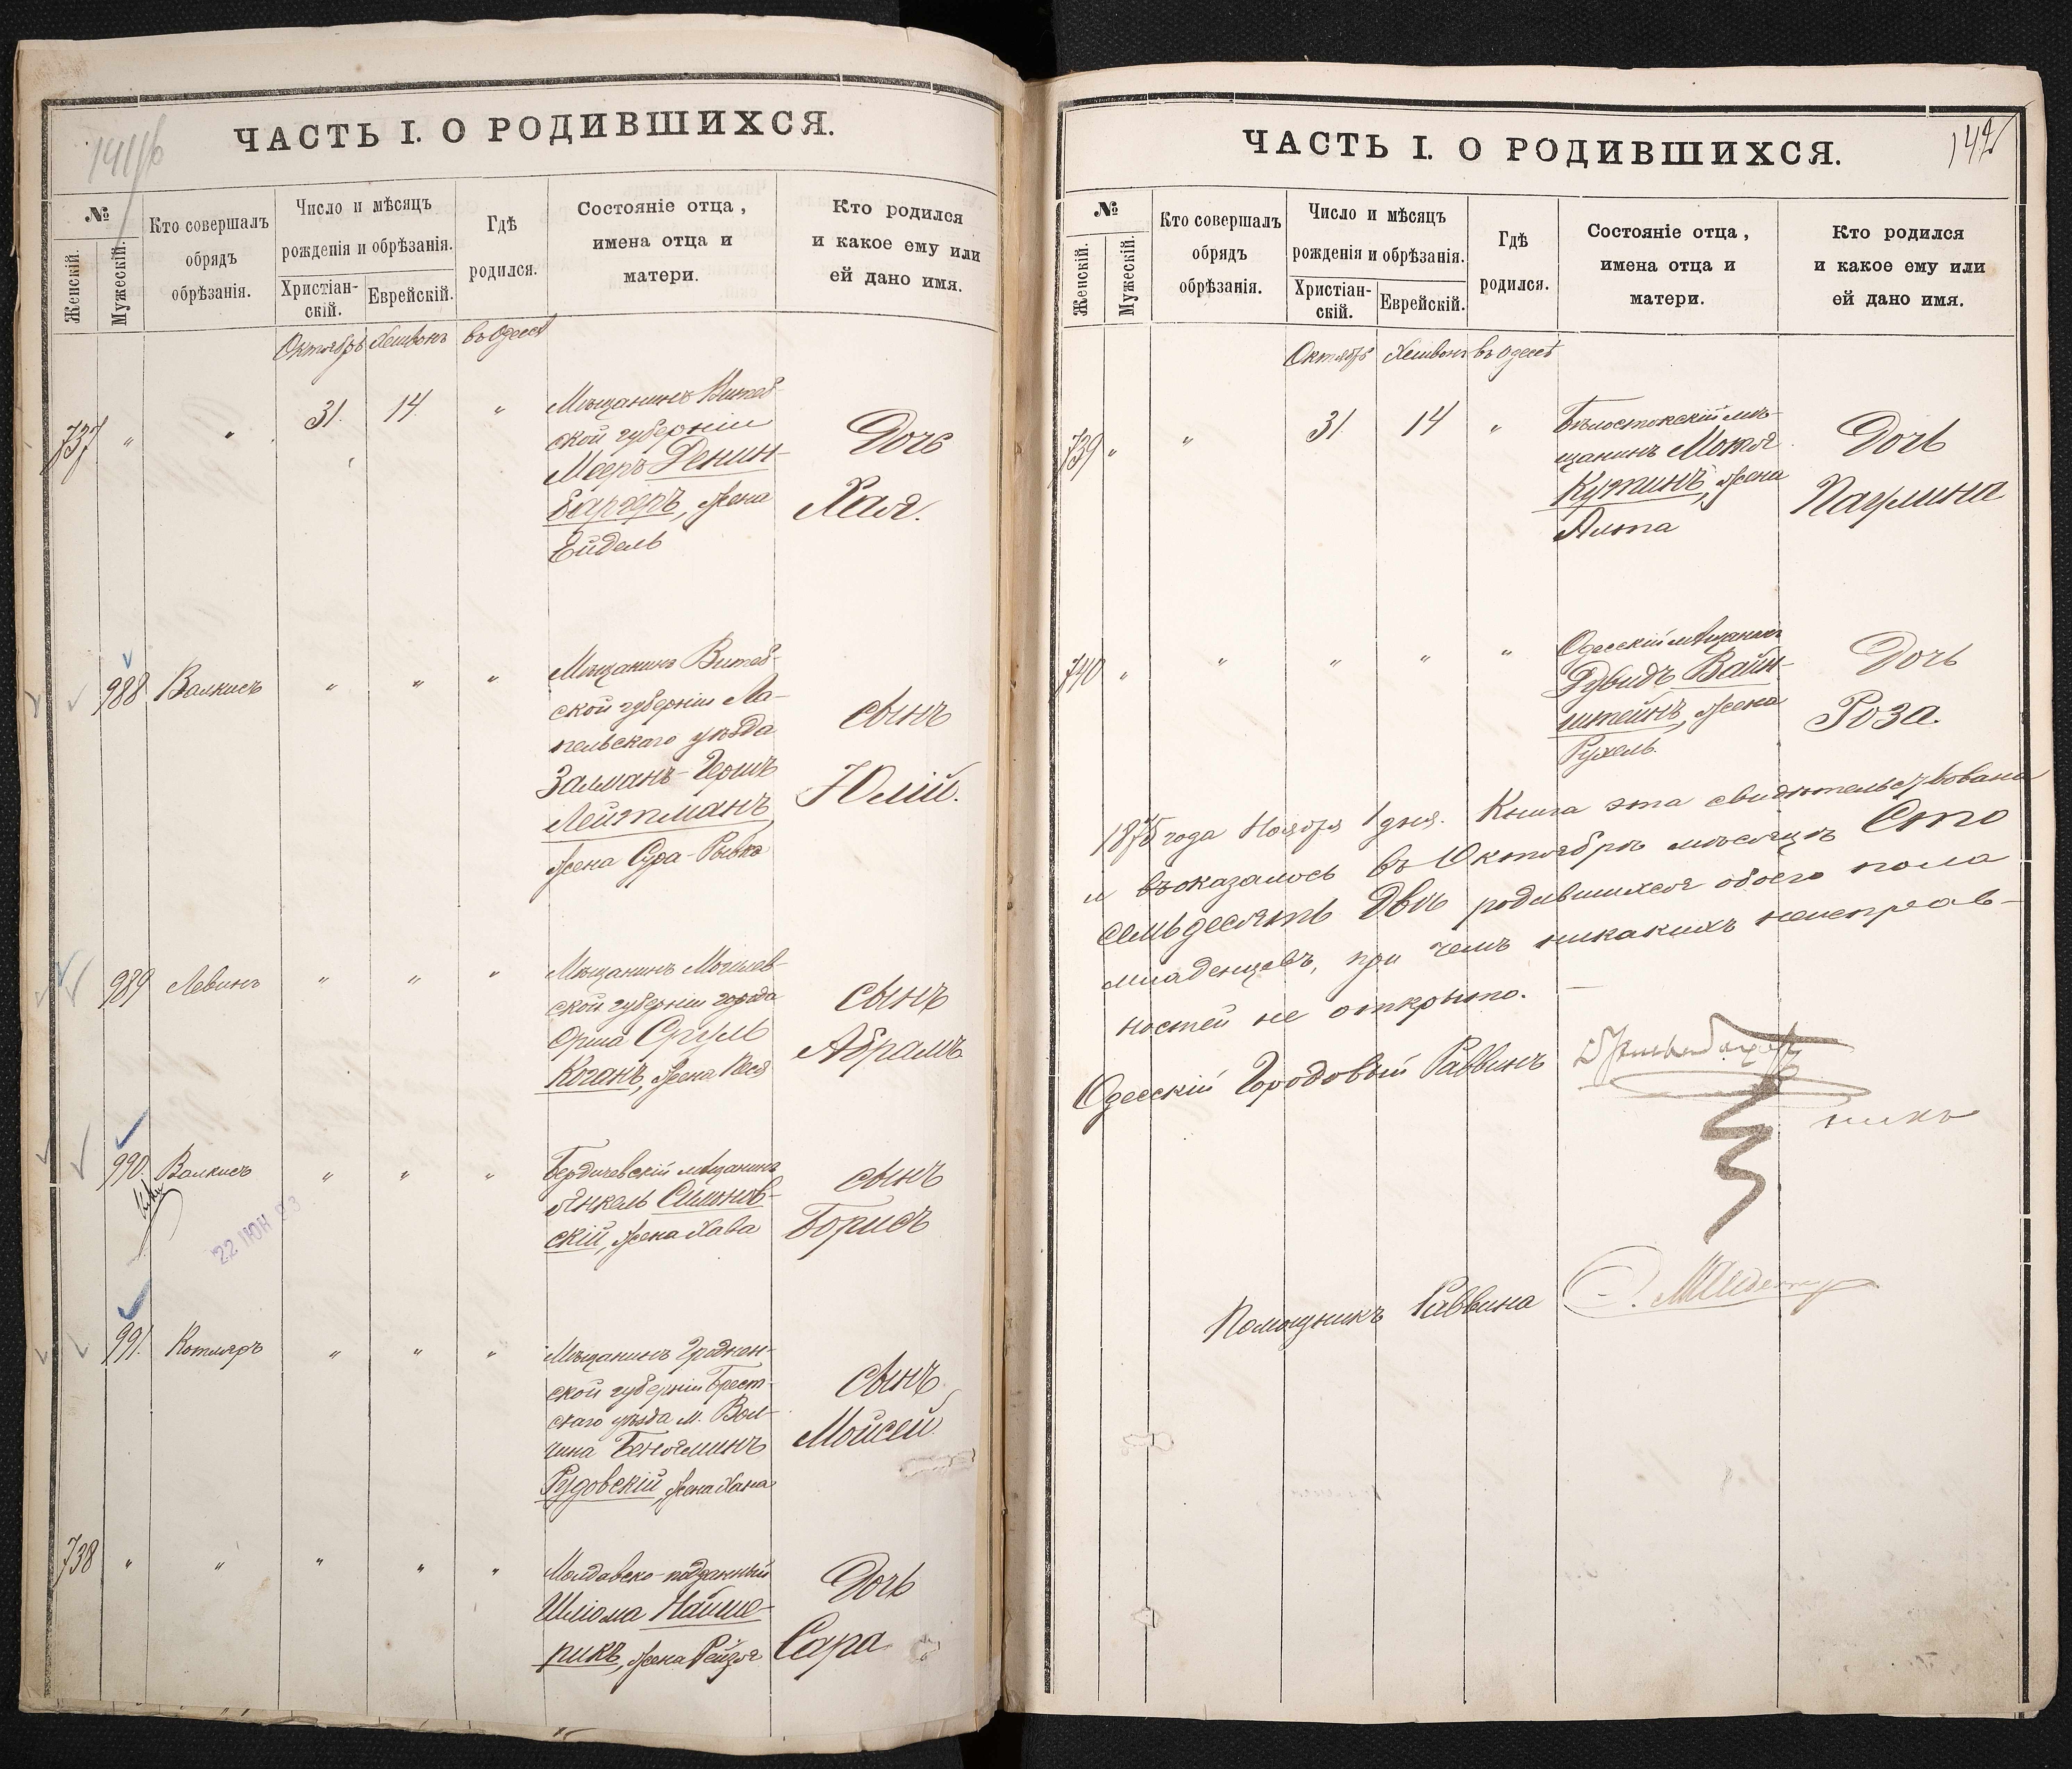 141 об
ЧАСТЬ I. О РОДИВШИХСЯ.
№
Женскій.
Мужескій.
Кто совершалъ
обрядъ
обрѣзанія.
Число и мѣсяцъ
рожденія и обрѣзанія.
Христіан-
скій.
Еврейскій.
Гдѣ
родился.
Состояніе отца,
имена отца и
матери.
Кто родился
и какое ему или
ей дано имя.
Октябрь Хешвонъ въ Одессѣ
737 " " 31. 14. "
Мѣщанинъ Витеб-
ской губерніи
Мееръ Денин-
бургеръ, жена
Ейдель
Дочь
Хая.
988 Валкисъ " " "
Мѣщанинъ Витеб-
ской губерніи Ле-
пельскаго уѣзда
Залманъ-Гершъ
Лейтманъ
жена Сура-Рывка
сынъ
Юлій.
989 Левинъ " " "
Мѣщанинъ Могилев-
ской губерніи города
Орша Сруль
Коганъ, жена Песя
сынъ
Абрамъ
990. Валкисъ " " "
22 ІЮН 93
Бердичевскій мѣщанинъ
Янкель Симнов-
скій, жена Хава
сынъ
Борисъ
991. Котляръ " " "
Мѣщанинъ Гроднен-
ской губерніи Брест-
скаго уѣзда м. Вол-
чина Беньяминъ
Рудовскій, жена Хана
сынъ
Мойсей.
738 " " " " "
Молдавско-подданный
Шліома Найше-
рикъ, жена Рейзя
Дочь
Сара
142
ЧАСТЬ I. О РОДИВШИХСЯ.
№
Женскій.
Мужескій.
Кто совершалъ
обрядъ
обрѣзанія.
Число и мѣсяцъ
рожденія и обрѣзанія.
Христіан-
скій.
Еврейскій.
Гдѣ
родился.
Состояніе отца,
имена отца и
матери.
Кто родился
и какое ему или
ей дано имя.
Октябрь Хешвонъ въ Одессѣ
739 " " 31 14 "
Бѣлостокскій мѣ-
щанинъ Мотя
Кутинъ, жена
Алта
Дочь
Паулина
740 " " " " "
Одесскій мѣщанинъ
Дувидъ Вайн-
штейнъ, жена
Рухель.
Дочь
Роза.
1875 года Ноября 1 дня. Книга эта свидѣтельствована
и въ оказалось въ Октябрѣ мѣсяцѣ Сто
семьдесятъ двѣ родившихся обоего пола
младенцевъ, при чемъ никакихъ неисправ-
ностей не открыто.
Одесскій Городовый Раввинъ
Помощникъ Раввина